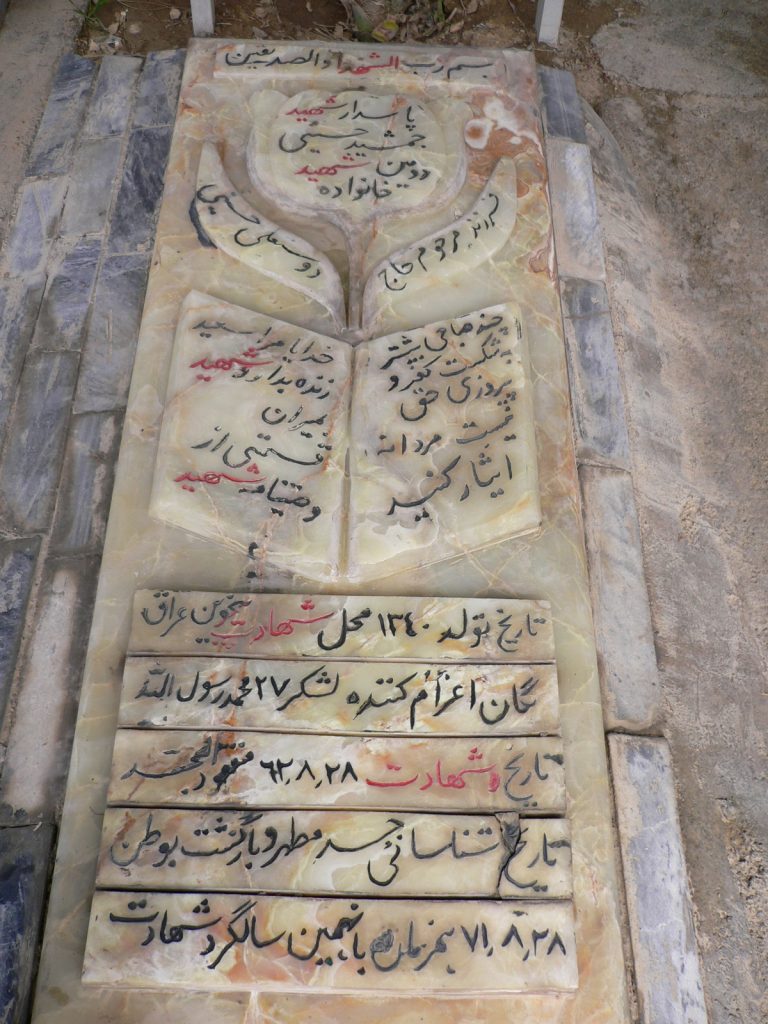 بسم رب الشهدا والصدیقین
پاسدار شهید
جمشید حسینی
دومین شهید
خانواده
فرزند مرحوم حاج
دوستعلی حسینی
چند صباحی بیشتر
به شکست کفر و
پیروزی حق
نیست مردانه
ایثار کنید
خدایا مرا سعید
زنده بدار و شهید
بمیران
قسمتی از
وصیتنامه شهید
تاریخ تولد ۱۳۴۰ محل شهادت پنجوین عراق
یگان اعزام کننده لشکر ۲۷ محمد رسول الله
تاریخ شهادت ۶۲٫۸٫۲۸ مفقود الجسد
تاریخ شناسائی جسد مطهر و بازگشت بوطن
۷۱٫۸٫۲۸ همزمان با نهمین سالگرد شهادت